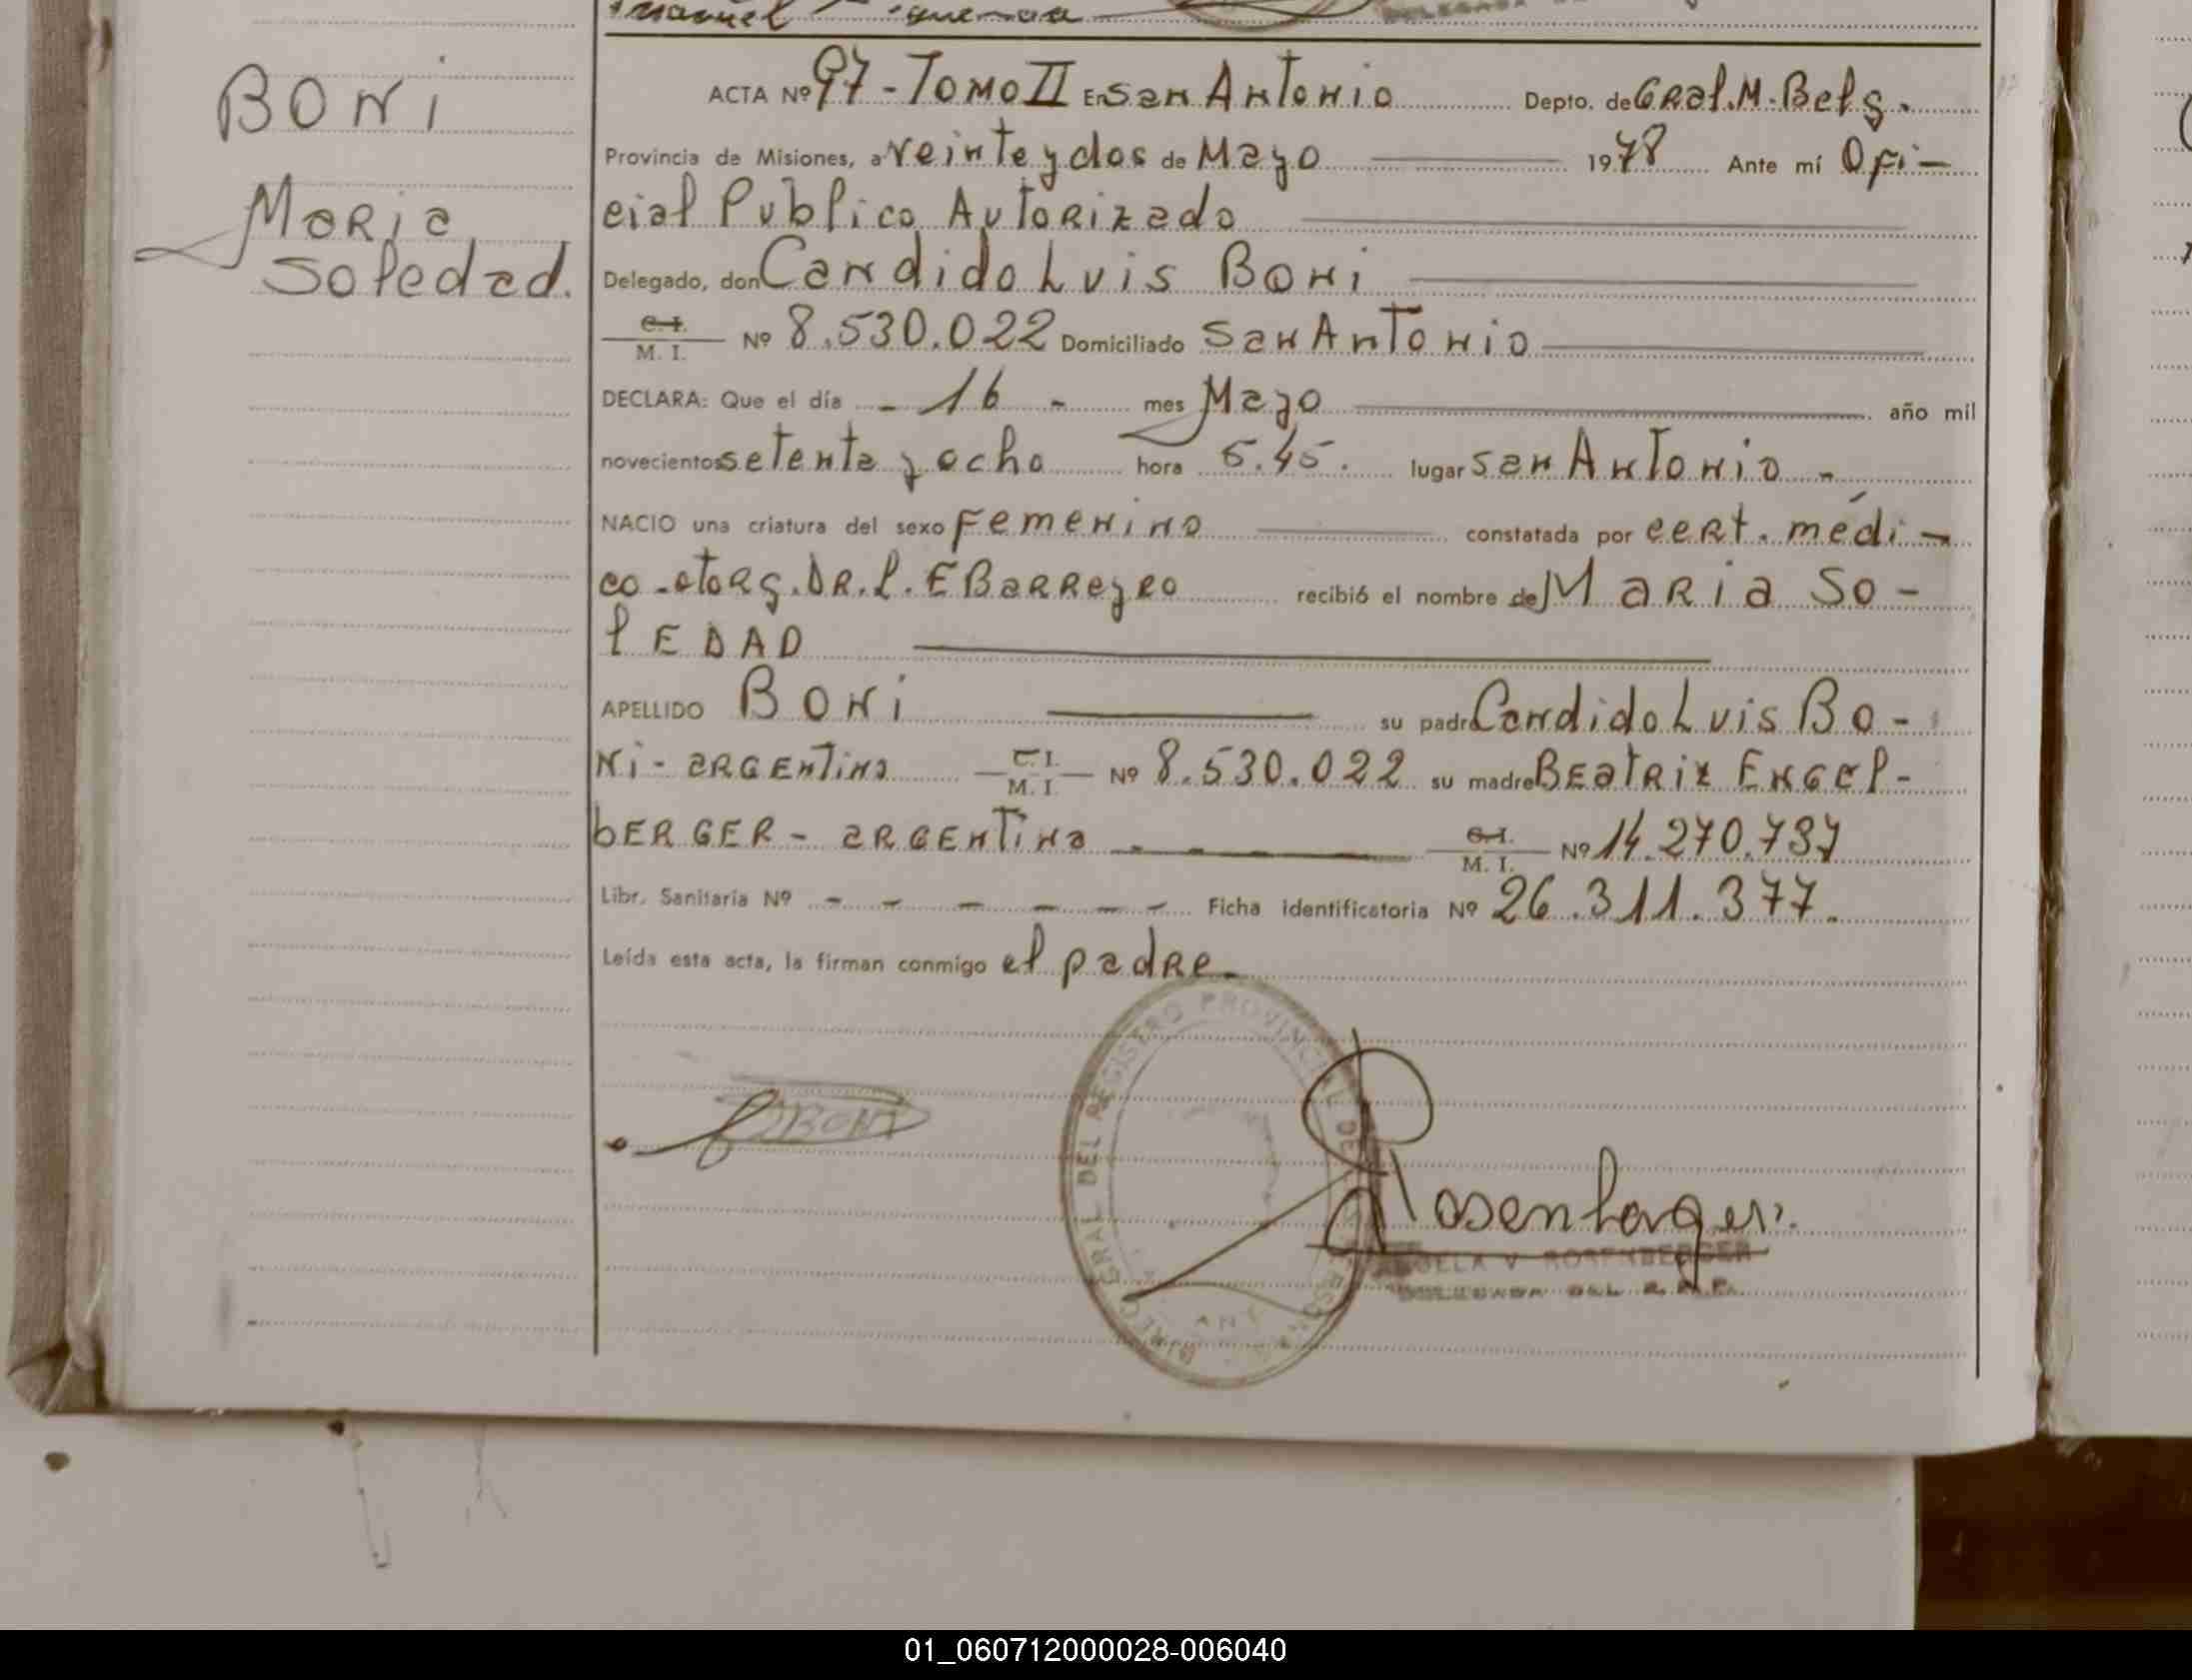 BONI
Maria
Soledad.
ACTA Nº 97 - TOMO II En San Antonio Depto. de Gral. M. Belg.
Provincia de Misiones, a veinte y dos de Mayo 1978 Ante mí Ofi-
cial Publico Autorizado
Delegado, don Candido Luis Boni
C. I.
M. I. Nº 8.530.022 Domiciliado San Antonio
DECLARA: Que el día - 16 - mes Mayo año mil
novecientos setenta y ocho hora 5.45. lugar San Antonio -
NACIO una criatura del sexo Femenino constatada por cert. médi-
co otorg. DR. L. E Barreyro recibió el nombre de MARIA SO-
lEDAD
APELLIDO BONi su padre Candido Luis Bo-
Ni - ARGENTINO C. I.
M. I. Nº 8.530.022 su madre BEATRIZ ENGEL-
bERGER - ARGENTINA - - - C. I.
M. I. Nº 14.270.737
Libr. Sanitaria Nº - - - - - - Ficha identificatoria Nº 26.311.377.
Leída esta acta, la firman conmigo el padre.
BONI
GRAL DEL REGISTRO PROVINCIAL DE
Rosenberger
V. ROSENBERGER
DELEGADA DEL R. P. P.
01_060712000028-006040